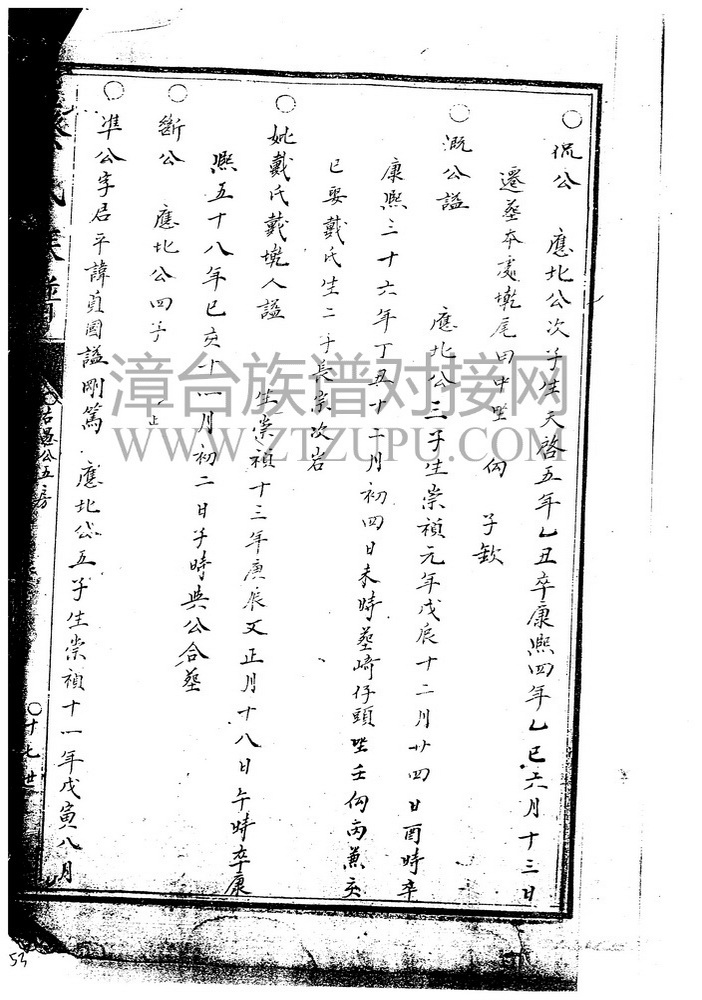 ○侃公　應北公次子生天啓五年乙丑卒康熙四年乙巳六月十三日
遷塟本處墘尾田中坐　向　子欽
○溉公謚　應北公三子生崇禎元年戊辰十二月廿四日酉時卒
康熙三十六年丁丑十二月初四日未時塟崎仔頭坐壬向丙兼亥
巳娶戴氏生二子長宗次岩
○妣戴氏戴墘人謚　生崇禎十三年庚辰又正月十八日午時卒康
熙五十八年己亥十一月初二日子時與公合塟
○斷公　應北公四子　止
○準公字居平諱貞國謚剛篤　應北公五子生崇禎十一年戊寅八月
氏族譜
公五房
○十七世
漳台族谱对接网
WWW.ZTZUPU.COM
53